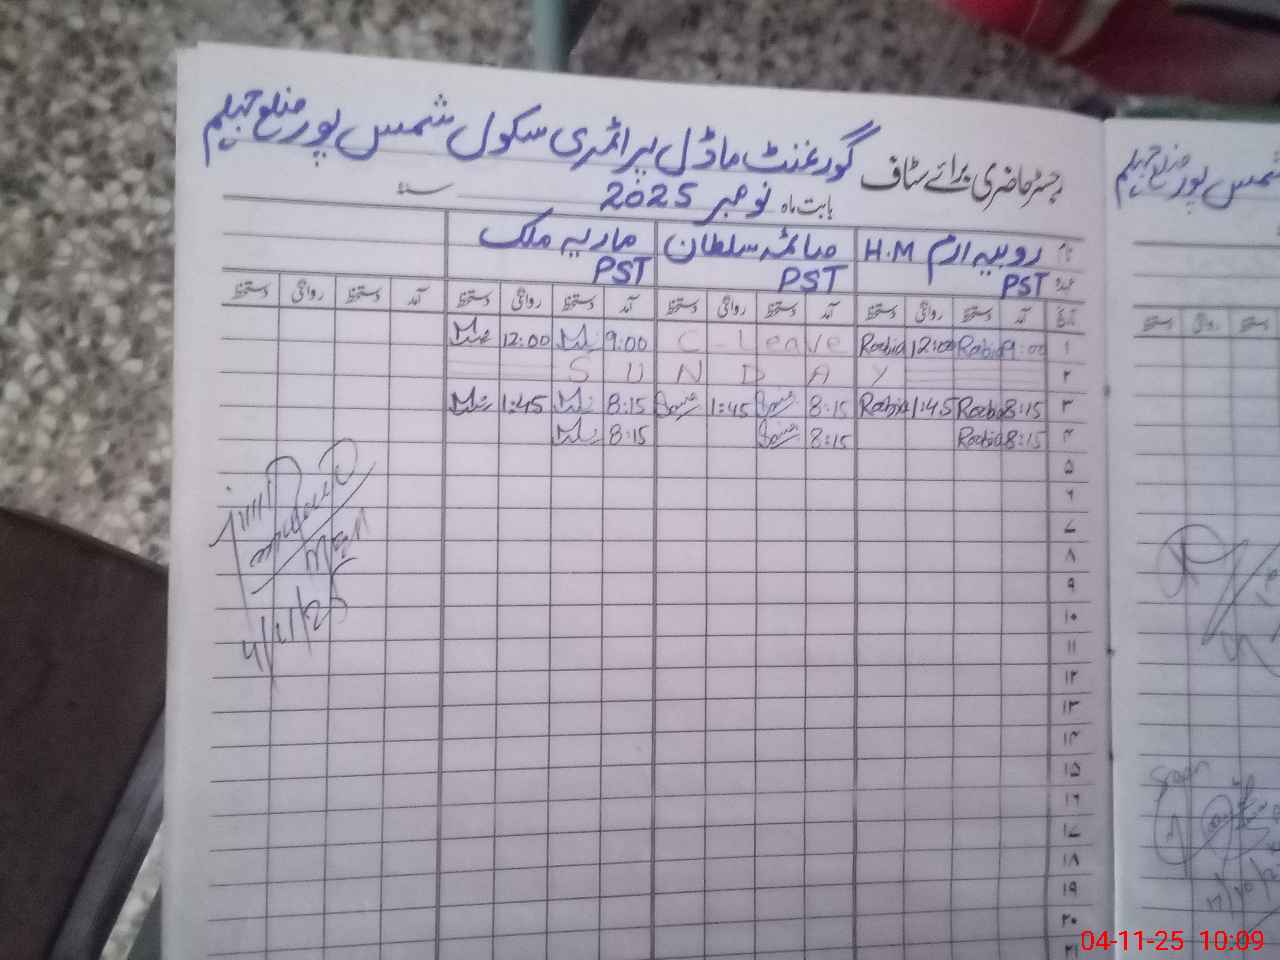 رجسٹر حاضری برائے سٹاف گورغنٹ ماڈل پرائمری سکول شمس پور ضلع جہلم
بابت ماہ نومبر 2025 سنہ
نام روبیہ ارم H.M صائمہ سلطان ماریہ ملک
عہدہ PST PST PST
تاریخ آمد دستخط روانگی دستخط آمد دستخط روانگی دستخط آمد دستخط روانگی دستخط آمد دستخط روانگی دستخط
۱ 9:00 Rabia 12:00 Rabia C-Leave 9:00 12:00
۲ SUNDAY
۳ 8:15 Rabia 1:45 Rabia 8:15 1:45 8:15 1:45
۴ 8:15 Rabia 8:15 8:15
۵
۶
۷
۸
۹
۱۰
۱۱
۱۲
۱۳
۱۴
۱۵
۱۶
۱۷
۱۸
۱۹
۲۰
۲۱
4/11/25
شمس پور ضلع جہلم
دستخط روانگی دستخط
04-11-25 10:09